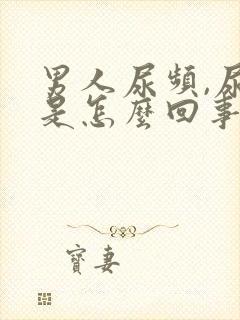 男人尿頻,尿
是怎麼回事
寶妻